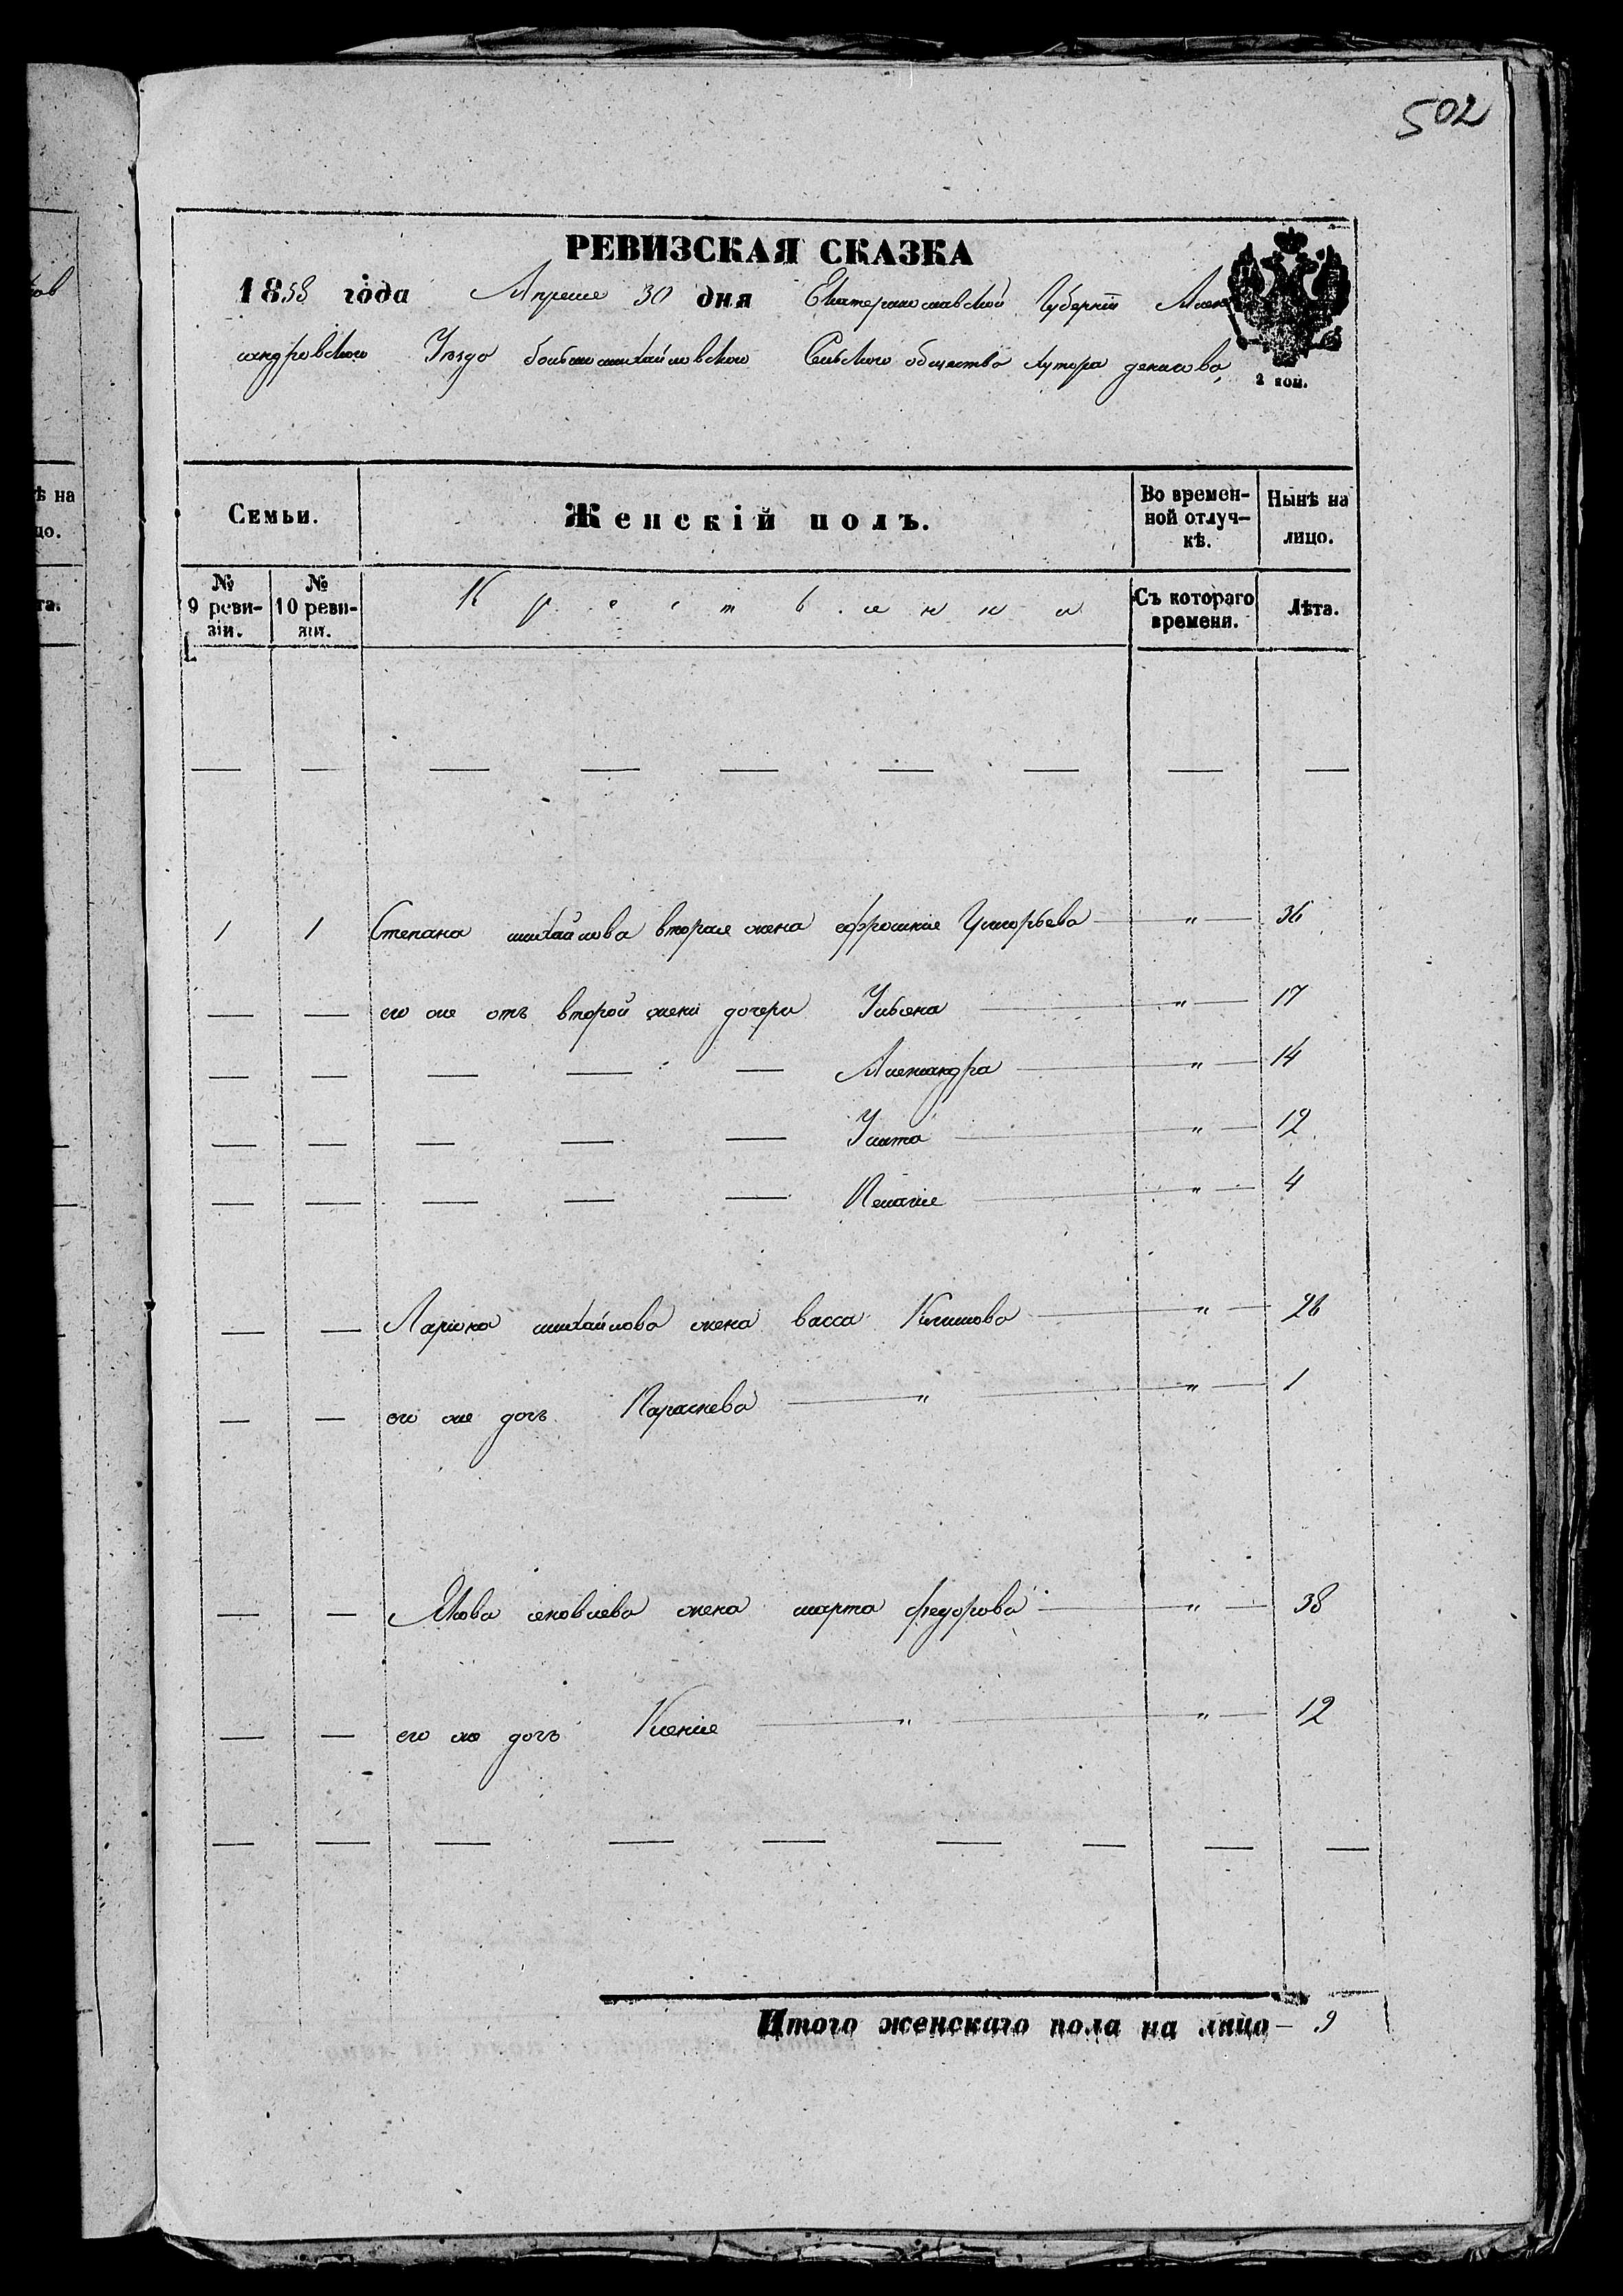 502
РЕВИЗСКАЯ СКАЗКА
1858 года Апреля 30 дня Екатеринославской Губерніи Алек
сандровского Уѣзда большемихайловского Сельского общества хутора
2 коп.
Семьи.
Женскій полъ.
Во времен-
ной отлуч-
кѣ.
Нынѣ на
лицо.
№
9 реви-
зіи.
№
10 реви-
зіи.
Крестьянки
Съ котораго
времени.
Лѣта.
1 1 Степана михайлова вторая жена ефросиния Григорьева — „ — 36
— — его же отъ второй жени дочери Ульяна — „ — 17
— — — — — Александра — „ — 14
— — — — — Улита — „ — 12
— — — — — Пелагия — „ — 4
— — Лариона михайлова жена васса Климова — „ — 26
— — его же дочь Параскева — „ — „ — 1
— — Якова яковлева жена марта федорова — „ — 38
— — его же дочь Ксения — „ — „ — 12
Итого женскаго пола на лицо — 9
ѣ на
цо.
та.